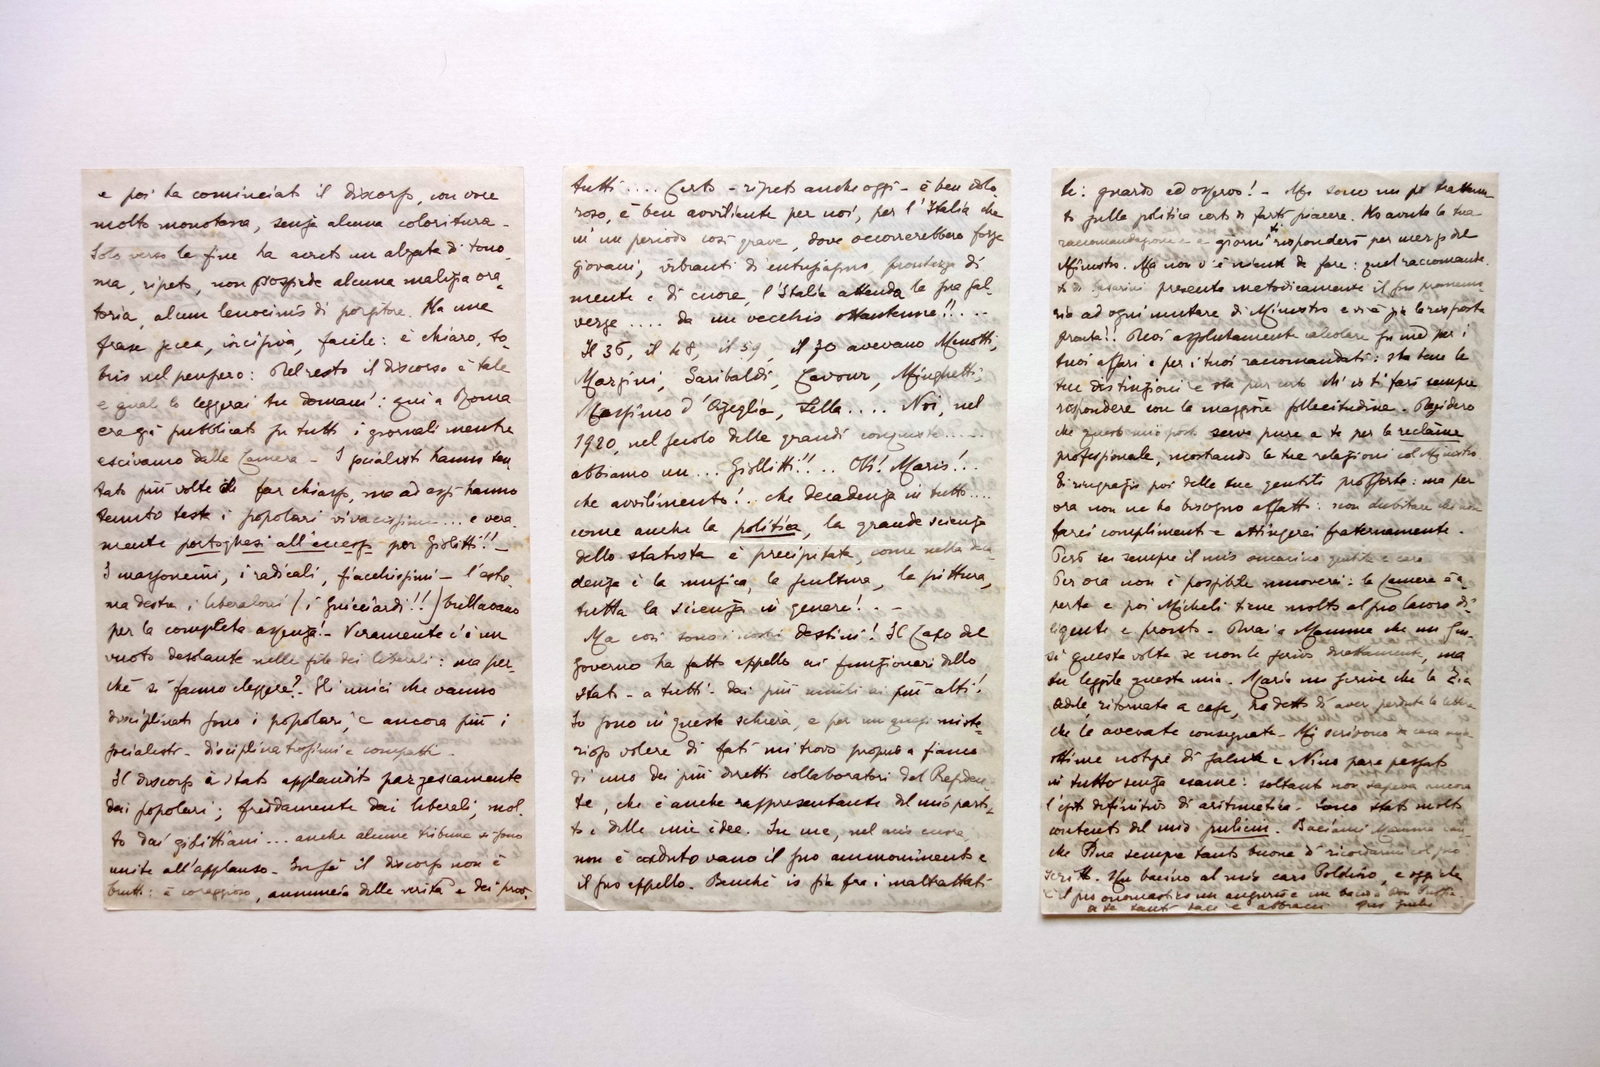 e poi ha cominciato il discorso, con voce
molto monotona, senza alcuna coloritura -
Solo verso la fine ha avuto un alzata di tono,
ma, ripeto, non possiede alcuna malizia ora
toria, alcun lenocinio di porgitore. Ha una
frase secca, incisiva, facile: è chiaro, so-
brio nel pensiero: Del resto il discorso è tale
e quale lo leggerai tu domani: qui a Roma
era già pubblicato su tutti i giornali mentre
escivamo dalla Camera - I socialisti hanno ten
tato più volte di far chiasso, ma ad essi hanno
tenuto testa i popolari vivacissimi.... e vera-
mente portoghesi all'eccesso per Giolitti!! -
I massoncini, i radicali, fiacchissimi - l'estre
ma destra, i liberaloni (i Guicciardi!!) brillavano
per la completa assenza! - Veramente c'è un
vuoto desolante nelle file dei liberali: ma per-
chè si fanno eleggere? Gli unici che vanno
disciplinati sono i popolari, e ancora più i
socialisti - disciplinatissimi e compatti -
Il discorso è stato applaudito pazzescamente
dai popolari; freddamente dai liberali, mol
to dai giolittiani... anche alcune tribune si sono
unite all'applauso. In sè il discorso non è
brutto: è coraggioso, annuncia delle verità e dei prov.
tutti .... Certo - ripeto anche oggi - è ben dolo
roso, è ben avviliente per noi, per l'Italia che
in un periodo così grave, dove occorrerebbero forze
giovani, vibranti di entusiasmo, prontezza di
mente e di cuore, l'Italia attenda la sua sal-
vezza .... da un vecchio ottantenne!! ..-
Il 36, il 48, il 59, il 70 avevano Minotti,
Mazzini, Garibaldi, Cavour, Minghetti,
Massimo d'Azeglio, Sella.... Noi, nel
1920, nel secolo delle grandi conquiste .....
abbiamo un ... Giollitti!! .. Oh! Mario! ...
che avvilimento! .. che decadenza in tutto....
come anche la politica, la grande scienza
dello statista è precipitata, come nella de
cadenza è la musica, la scultura, la pittura,
tutta la scienza in genere! . -
Ma così sono i nostri destini! Il Capo del
Governo ha fatto appello ai funzionari dello
Stato - a tutti - dai più umili ai più alti!
Io sono in questa schiera, e per un quasi miste-
rioso volere di fati mi trovo proprio a fianco
di uno dei più diretti collaboratori del Presiden-
te, che è anche rappresentante del mio parti-
to e delle mie idee. In me, nel mio cuore
non è caduto vano il suo ammonimento e
il suo appello. Benchè io sia fra i maltrattati
ti: guardo ed osservo! - Mi sono un po' trattenu
to sulla politica certo di farti piacere. Ho avuto la tua
raccomandazione e a giorni ti risponderò per mezzo del
Ministro. Ma non v'è niente da fare: quel raccomanda-
to di presenta metodicamente il suo
ad ogni mutare di Ministro e v'è già la risposta
pronta!. Puoi assolutamente calcolare su me per i
tuoi affari e per i tuoi raccomandati: sta tene le
tue distinzioni e sta pur certo ch'io ti farò sempre
rispondere con la maggiore sollecitudine. Desidero
che questo mio posto serva pure a te per la reclame
professionale, mostrando le tue relazioni col Ministro.
Ti ringrazio poi delle tue gentili profferte: ma per
ora non ne ho bisogno affatto: non dubitare che non
farei complimenti e attingerei fraternamente.
Però sei sempre il mio omaccino gentile e caro
Per ora non è possibile muoversi: la Camera è a
perta e poi Micheli tiene molto al suo lavoro di-
ligente e pronto - Dirai a Mamma che mi scu-
si questa volta se non le scrivo direttamente, ma
tu leggile questa mia. Maria mi scrive che la Zia
Adele, ritornata a casa, ha detto di aver perduto la lettera
che le avevate consegnata. Mi scrivono da casa mia
ottime notizie di salute e Nino pare passato
in tutto senza esame: soltanto non sapeva ancora
l'esito definitivo di aritmetica. Sono stato molto
contento del mio pulicin. Baciami Mamma an-
che Pina sempre tanto buona di ricordarmi col suo
scritto. Un bacino al mio caro Poldino, e oggi che
è il suo onomastico un augurio e un bacio con tutta
a te tanti baci e abbracci tuo